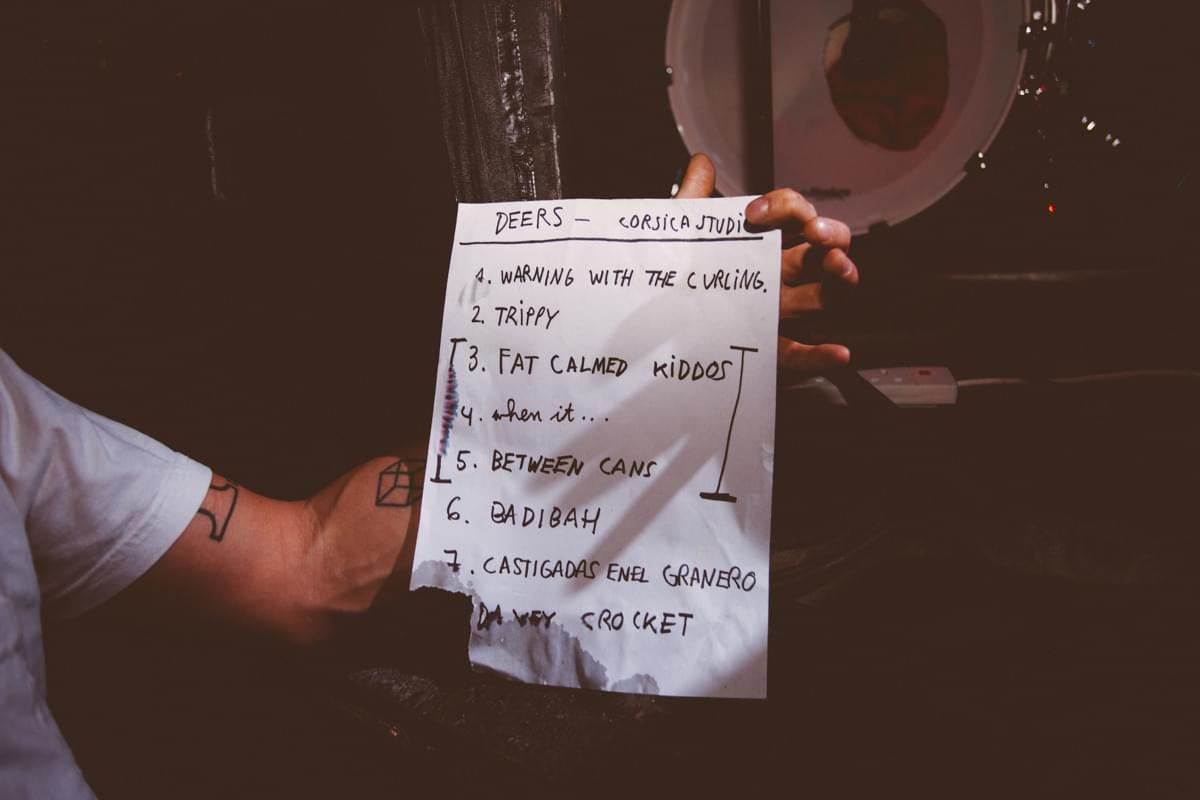 DEERS — CORSICA STUDIO
1. WARNING WITH THE CURLING.
2. TRIPPY
3. FAT CALMED KIDDOS
4. when it...
5. BETWEEN CANS
6. BADIBAH
7. CASTIGADAS ENEL GRANERO
DAVEY CROCKET